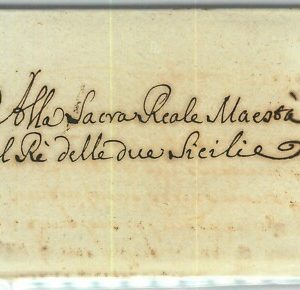 Alla Sacra Reale Maestà
l Rè delle due Sicilie